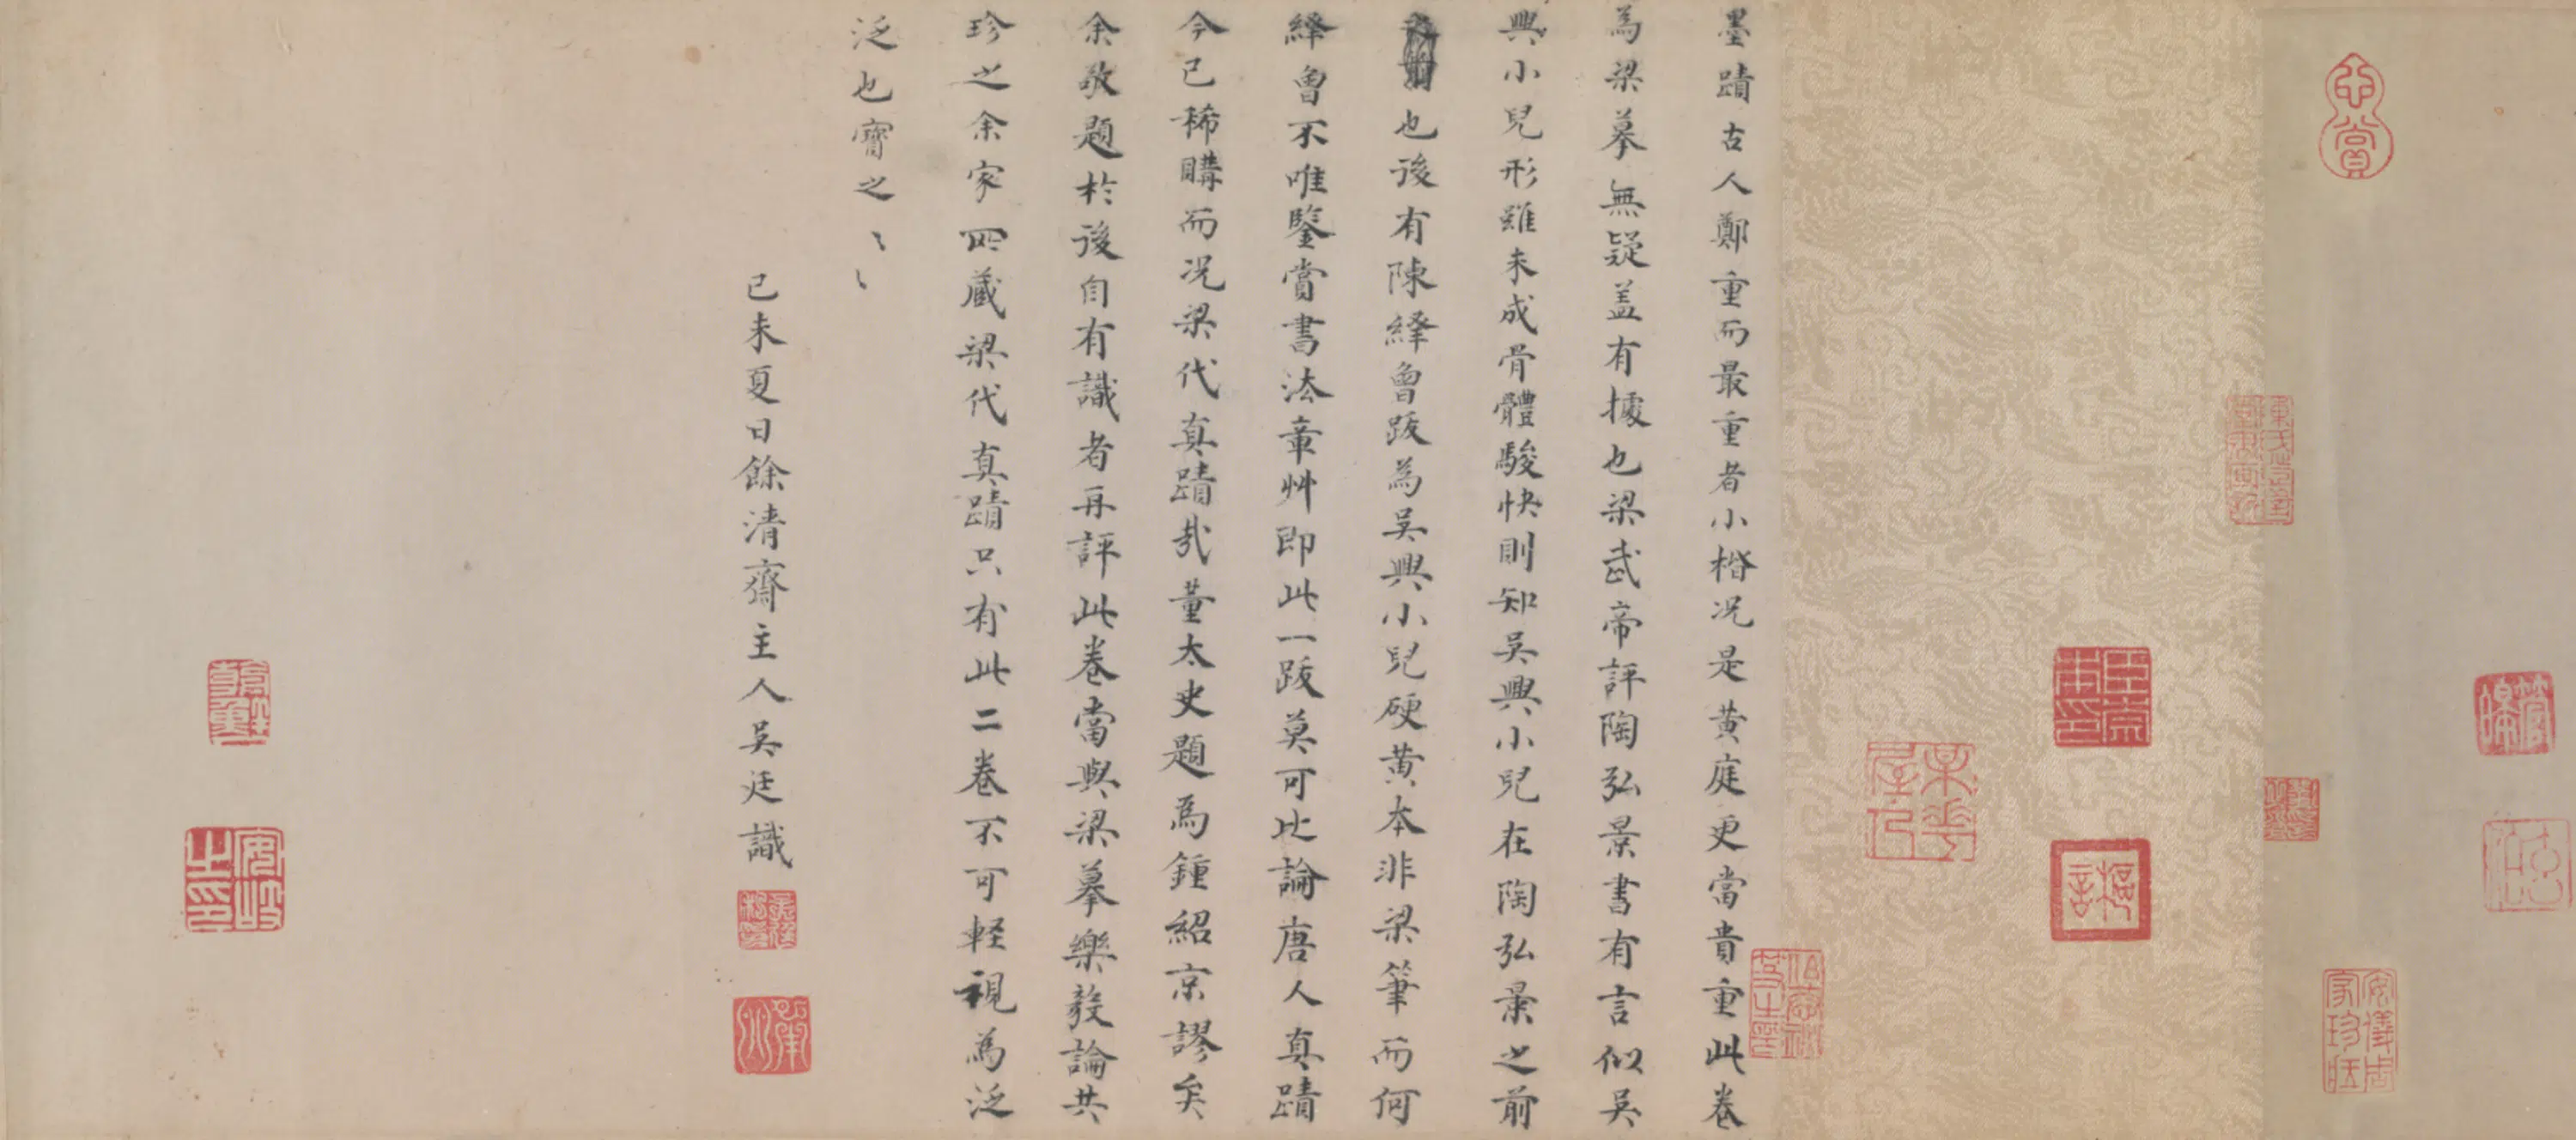 墨蹟古人鄭重而最重者小楷况是黄庭更當貴重此卷
為梁摹無疑盖有據也梁武帝評陶弘景書有言似吳
興小兒形雖未成骨體駿快則知吳興小兒在陶弘景之前
也後有陳繹曾跋為吳興小兒硬黄本非梁筆而何
繹曾不唯鑒賞書法章艸即此一跋莫可比論唐人真蹟
今已稀購而况梁代真蹟哉董太史題為鍾紹京謬矣
余敬題於後自有識者再評此卷當與梁摹樂毅論共
珍之余家四藏梁代真蹟只有此二卷不可輕視為泛
泛也寶之〻
己未夏日餘清齋主人吳廷識
心賞
安岐之印
安儀周家珍